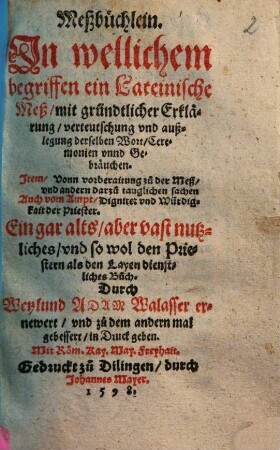 2
Meßbüchlein.
In wellichem
begriffen ein Lateinische
Meß/ mit gründtlicher Erklä-
rung/ verteutschung vnd auß-
legung derselben Wort/ Cere-
monien vnnd Ge-
bräuchen.
Item/ Vonn vorberaitung zů der Meß/
vnd andern darzů tauglichen sachen
Auch vom Ampt/ Dignitet vnd Würdig-
kait der Priester.
Ein gar alts/ aber vast nutz-
liches/ vnd so wol den Prie-
stern als den Layen dienst-
liches Bůch.
Durch
Weylund ADAM Walasser er-
newert/ vnd zů dem andern mal
gebessert/ in Druck geben.
Mit Röm. Kay. May. Freyhait.
Gedruckt zů Dilingen/ durch
Johannes Mayer.
1598.